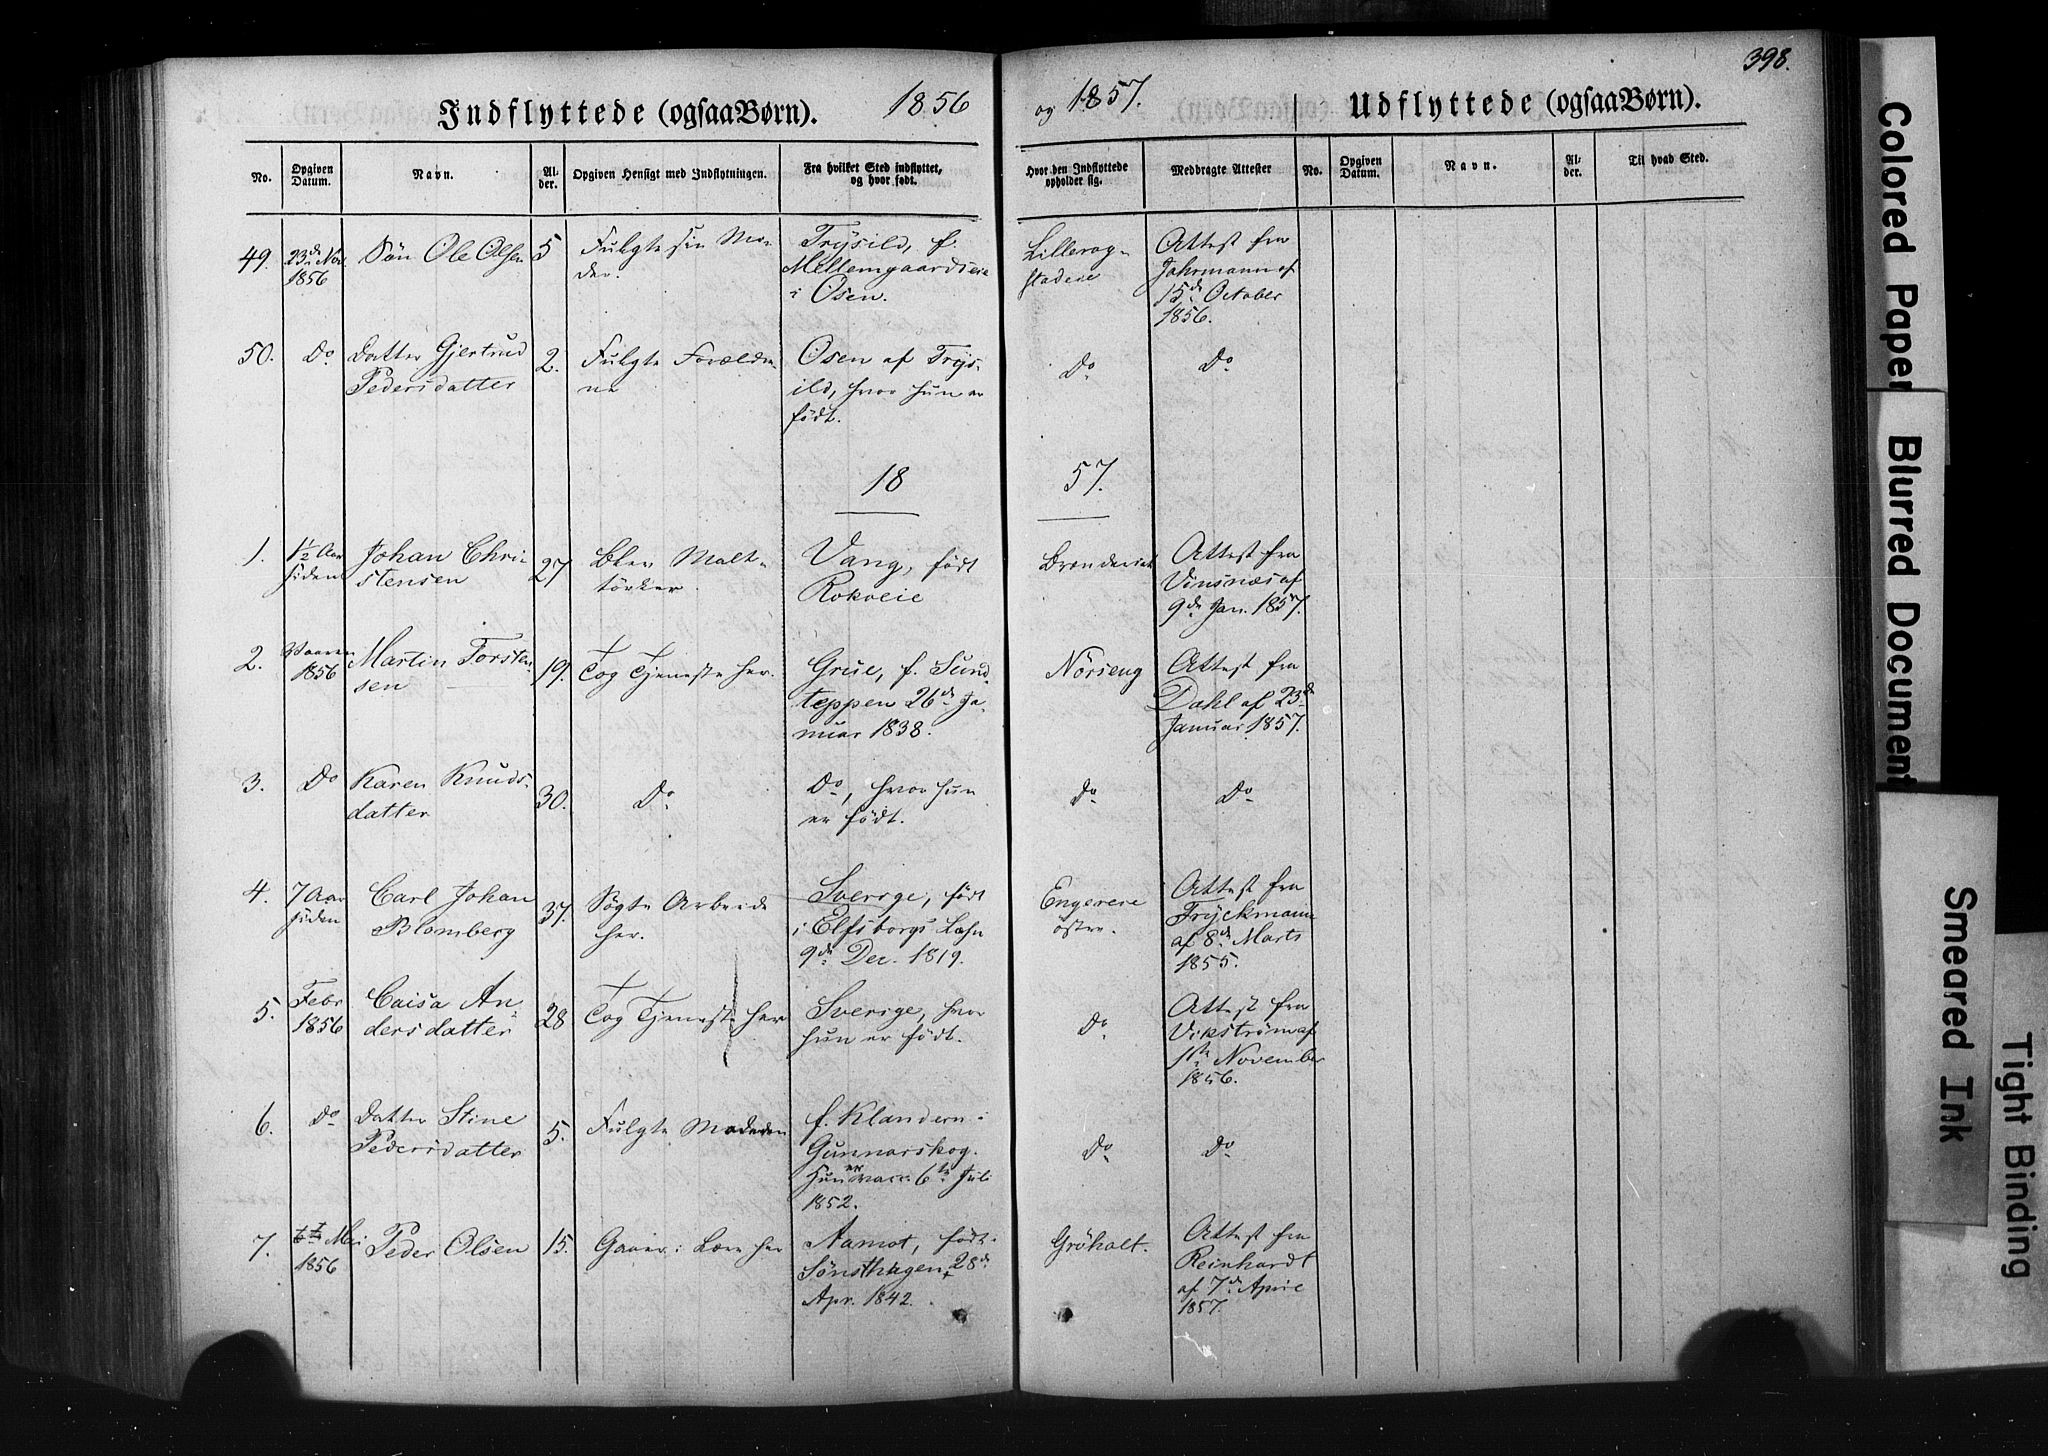 398.
Indflyttede (ogsaa Børn). 1856 og 1857. Udflyttede (ogsaa Børn).
No. Opgiven Datum. Navn. Alder. Opgiven Hensigt med Indflytningen. Fra hvilket Sted indflyttet, og hvor født. Hvor den Indflyttede opholder sig. Medbragte Attester No. Opgiven Datum. Navn. Alder. Til hvad Sted.
49. 23de Nov. 1856 Søn Ole Olsen 5 Fulgte sin Moder. Trysild, f. Mellemgaardseie i Osen. Attest fra af 15de October 1856.
50. Do Datter Gjertrud Pedersdatter 2. Fulgte Forældrene Osen af Trysild, hvor hun er født. Do Do
18 57.
1. 1½ Aar siden Johan Christensen 27 Blev Malttörker. Vang, født Rokoeie Attest fra af 9de Jan. 1857.
2. Vaaren 1856 Martin Torstensen 19. Tog Tjeneste her. Grue, f. Sundteppen 26de Januar 1838. Nörseng Attest fra Dahl af 23de Januar 1857.
3. Do Karen Knudsdatter 30. Do Do, hvor hun er født. Do Do
4. 7 Aar siden Carl Johan Blomberg 37. Søgte Arbeide her. Sverige, født i Elfsborgs Læhn 9de Dec. 1819. østre. Attest fra Fryckmann af 8de Marts 1855.
5. Febr 1856 Caisa Andersdatter 28 Tog Tjeneste her Sverige, hvor hun er født. Do Attest fra Vikström af 1ste November 1856.
6. Do Datter Stine Pedersdatter 5. Fulgte Moderen f. Klandern i Gunnarskog. 6te Juli 1852. Do Do
7. Mai 1856 Peder Olsen 15. i Lære her Aamot, født Sönsthagen, 28de Apr. 1842. Gröholt. Attest fra Reinhardt af 7de April 1857.
Colored Paper
Blurred Document
Smeared Ink
Tight Binding